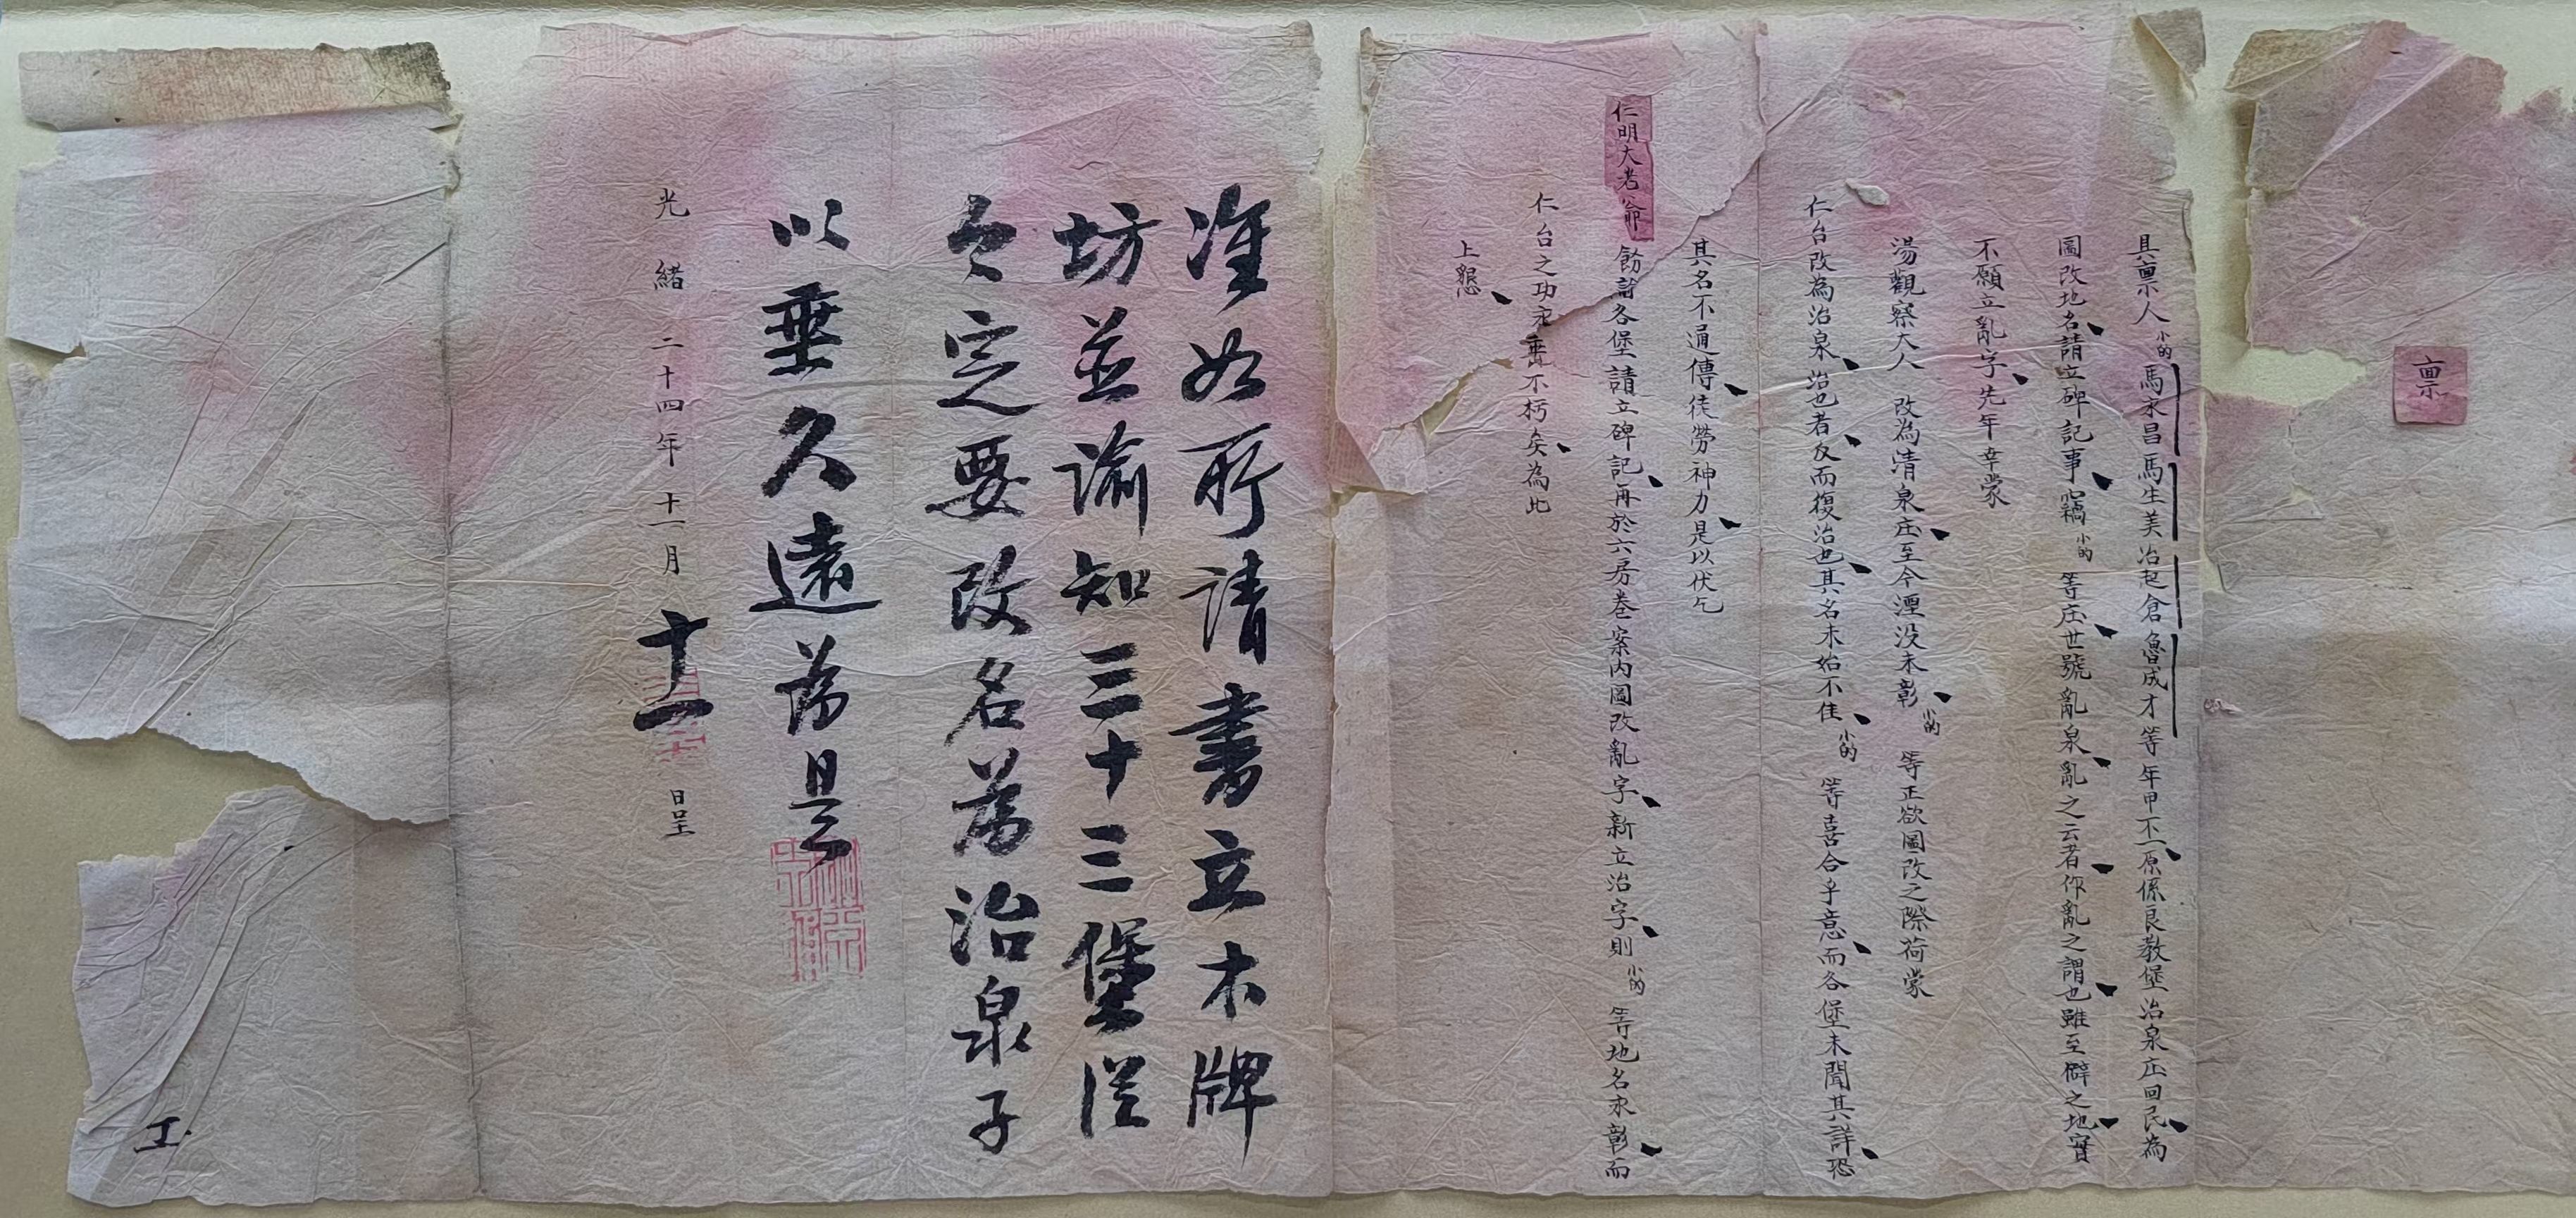 稟
具稟人小的馬永昌馬生美冶起倉魯成才等年甲不一原係良教堡治泉庄回民為
圖改地名請立碑記事竊小的等庄世號亂泉亂之云者作亂之謂也雖至僻之地實
不願立亂字先年幸蒙
湯觀察大人 改為清泉庄至今湮没未彰小的等正欲圖改之際荷蒙
仁台改為治泉治也者反而復治也其名未始不佳小的等喜合乎意而各堡未聞其詳恐
其名不通傳徒勞神力是以伏乞
仁明大老爺 飭諭各堡請立碑記再於六房卷案内圖改亂字新立治字則小的等地名永彰而
仁台之功永垂不朽矣為此
上懇
准如所请書立木牌
坊並諭知三十三堡從
今定要改名為治泉子
以垂久遠為是
光緒二十四年十一月十一日呈
工